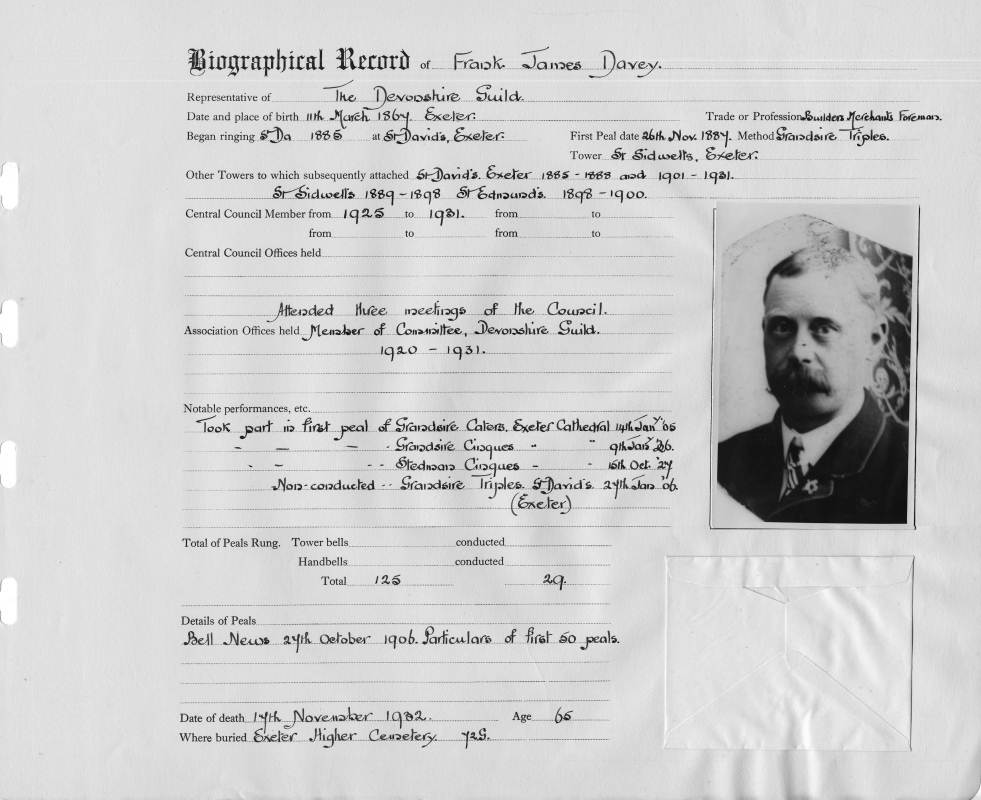 Biographical Record of Frank James Davey.
Representative of The Devonshire Guild.
Date and place of birth 11th March 1867. Exeter. Trade or Profession Builders Merchants Foreman.
Began ringing St Da 1885 at St David's, Exeter. First Peal date 26th Nov. 1887. Method Grandsire Triples.
Tower St Sidwells, Exeter.
Other Towers to which subsequently attached St David's. Exeter 1885 - 1888 and 1901 - 1931.
St Sidwell's 1889 - 1898 St Edmund's. 1898 - 1900.
Central Council Member from 1925 to 1931. from to
from to from to
Central Council Offices held
Attended three meetings of the Council.
Association Offices held Member of Committee, Devonshire Guild.
1920 - 1931.
Notable performances, etc.
Took part in first peal of Grandsire Caters. Exeter Cathedral 14th Jan' '05
" - - - Grandsire Cinques " " 9th Jan'
" - - - Stedman Cinques - " 15th Oct. '27
Non-conducted -- Grandsire Triples. St David's. 27th Jan '06.
(Exeter)
Total of Peals Rung. Tower bells conducted
Handbells conducted
Total 125 29.
Details of Peals
Bell News 27th October 1906. Particulars of first 50 peals.
Date of death 17th November 1932. Age 65
Where buried Exeter Higher Cemetery. 72G.